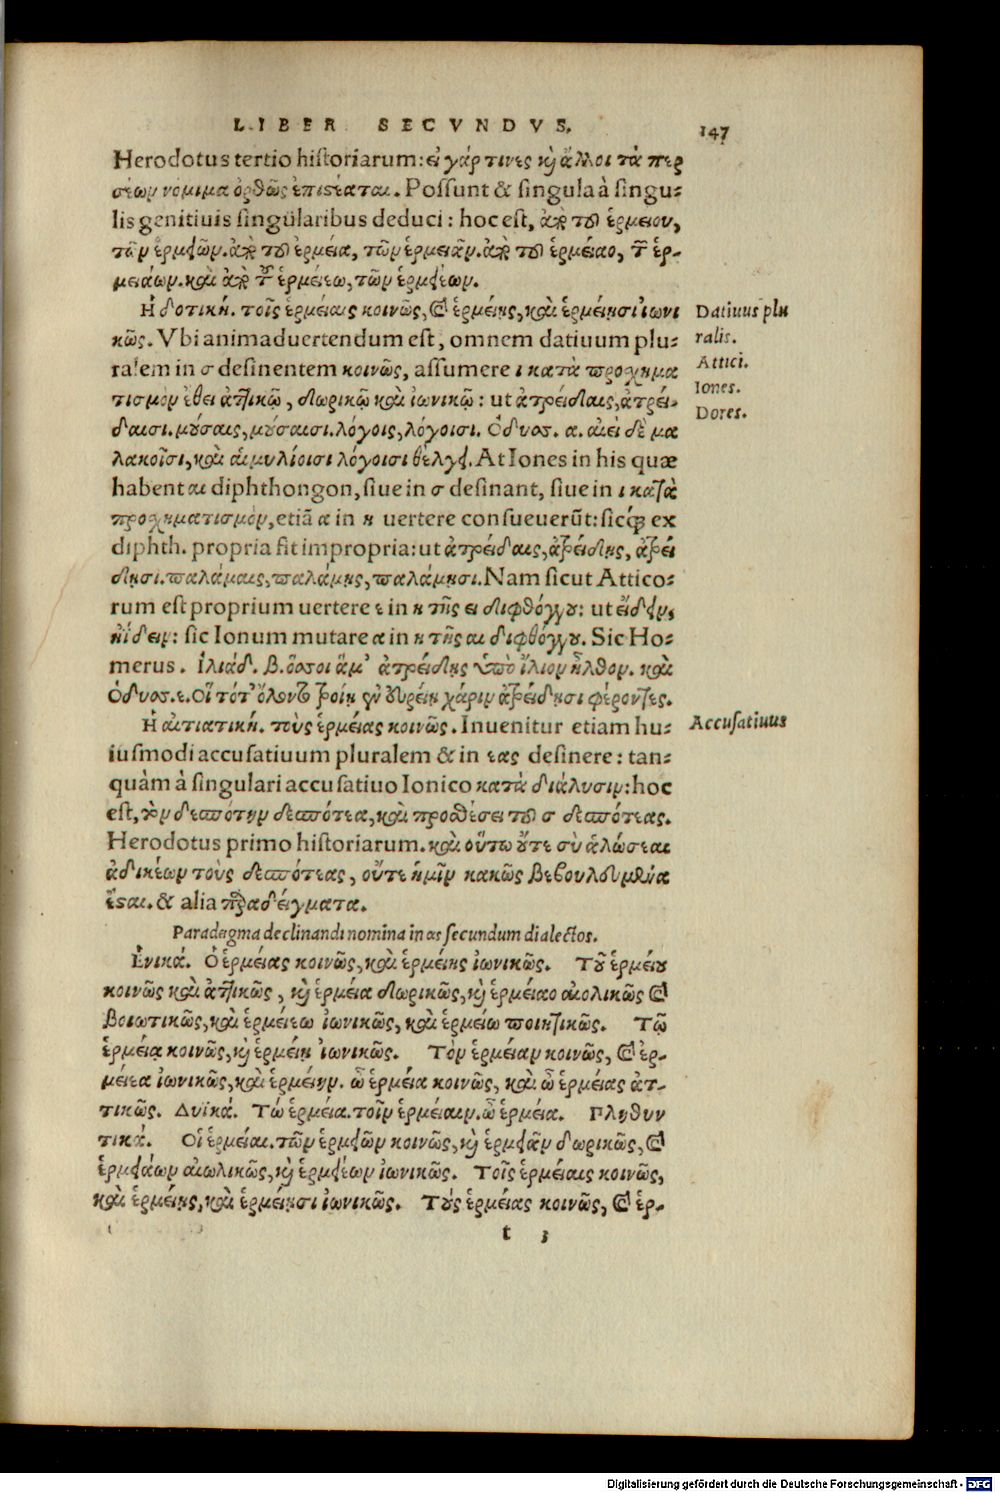 LIBER SECVNDVS.
147
Herodotus tertio historiarum: εἰ γάρ τινες κỳ ἄλλοι τὰ περ
σέων νόμιμα ὀρθῶς ἐπιστέαται. Possunt & singula à singu-
lis genitiuis singularibus deduci: hoc est, ἀπὸ τοῦ ἑρμείου,
τῶν ἑρμειῶν. ἀπὸ τοῦ ἑρμεία, τῶν ἑρμειᾶν. ἀπὸ τοῦ ἑρμείαο, τῶν ἑρ-
μειάων. καὶ ἀπὸ τοῦ ἑρμείεω, τῶν ἑρμειέων.
Ἡ δοτική. τοῖς ἑρμείαις κοινῶς, & ἑρμείῃς, καὶ ἑρμείῃσι ἰωνι
κῶς. Vbi animaduertendum est, omnem datiuum plu-
ralem in σ desinentem κοινῶς, assumere ι κατὰ προσχημα
τισμὸν ἔθει ἀττικῷ, δωρικῷ καὶ ἰωνικῷ: ut ἀτρείδαις, ἀτρεί-
δαισι. μούσαις, μούσαισι. λόγοις, λόγοισι. Ὀδυσ. α. αἰεὶ δὲ μα
λακοῖσι, καὶ αἱμυλίοισι λόγοισι θέλγει. At Iones in his quæ
habent αι diphthongon, siue in σ desinant, siue in ι κατὰ
προσχηματισμὸν, etiã α in η uertere consueuerũt: sicq́; ex
diphth. propria fit impropria: ut ἀτρείδαις, ἀτρείδῃς, ἀτρεί
δῃσι. παλάμαις, παλάμῃς, παλάμῃσι. Nam sicut Attico-
rum est proprium uertere ε in η τῆς ει διφθόγγου: ut εἴδειν,
ᾔδειν: sic Ionum mutare α in η τῆς αι διφθόγγου. Sic Ho-
merus. Ἰλιάδ. β. ὅσσοι ἅμ' ἀτρείδῃς ὑπὸ ἴλιον ἦλθον. καὶ
Ὀδυσ. ε. Οἳ τότ' ὄλοντο τροίῃ ἐν εὐρείῃ χάριν ἀτρείδῃσι φέροντες.
Ἡ αἰτιατική. τοὺς ἑρμείας κοινῶς. Inuenitur etiam hu-
iusmodi accusatiuum pluralem & in εας desinere: tan-
quàm à singulari accusatiuo Ionico κατὰ διάλυσιν: hoc
est, τὸν δεσπότην δεσπότεα, καὶ προσθέσει τοῦ σ δεσπότεας.
Herodotus primo historiarum. καὶ οὕτω οὔτε σὺ ἁλώσεαι
ἀδικέων τοὺς δεσπότεας, οὔτε ἡμῖν κακῶς βεβουλευμένα
ἔσται. & alia παραδείγματα.
Paradigma declinandi nomina in ας secundum dialectos.
Ἑνικά. Ὁ ἑρμείας κοινῶς, καὶ ἑρμείης ἰωνικῶς. Τοῦ ἑρμείου
κοινῶς καὶ ἀττικῶς, κỳ ἑρμεία δωρικῶς, κỳ ἑρμείαο αἰολικῶς &
βοιωτικῶς, καὶ ἑρμείεω ἰωνικῶς, καὶ ἑρμείω ποιητικῶς. Τῷ
ἑρμείᾳ κοινῶς, κỳ ἑρμείῃ ἰωνικῶς. Τὸν ἑρμείαν κοινῶς, & ἑρ-
μείεα ἰωνικῶς, καὶ ἑρμείην. ὦ ἑρμεία κοινῶς, καὶ ὦ ἑρμείας ἀτ-
τικῶς. Δυϊκά. Τώ ἑρμεία. τοῖν ἑρμείαιν. ὦ ἑρμεία. Πληθυν
τικά. Οἱ ἑρμείαι. τῶν ἑρμειῶν κοινῶς, κỳ ἑρμειᾶν δωρικῶς, &
ἑρμειάων αἰολικῶς, κỳ ἑρμειέων ἰωνικῶς. Τοῖς ἑρμείαις κοινῶς,
καὶ ἑρμείῃς, καὶ ἑρμείῃσι ἰωνικῶς. Τούς ἑρμείας κοινῶς, & ἑρ-
t 3
Datiuus plu
ralis.
Attici.
Iones.
Dores.
Accusatiuus
Digitalisierung gefördert durch die Deutsche Forschungsgemeinschaft - DFG